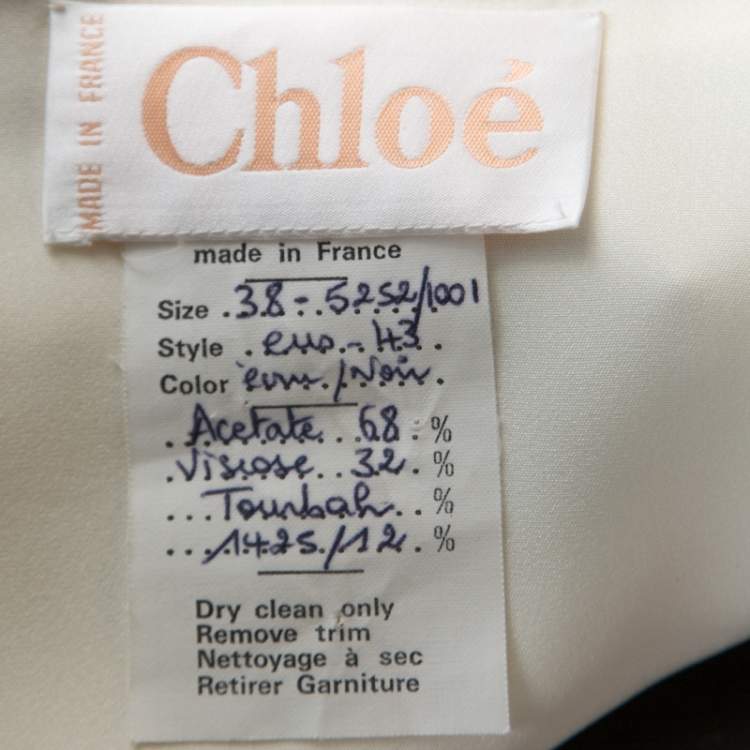 MADE IN FRANCE
Chloé
made in France
Size .38-5252/1001
Style . - 43.
Color /Noir.
. Acetate...68.%
.Viscose..32.%
...Tourbah..%
...1425/12.%
Dry clean only
Remove trim
Nettoyage à sec
Retirer Garniture